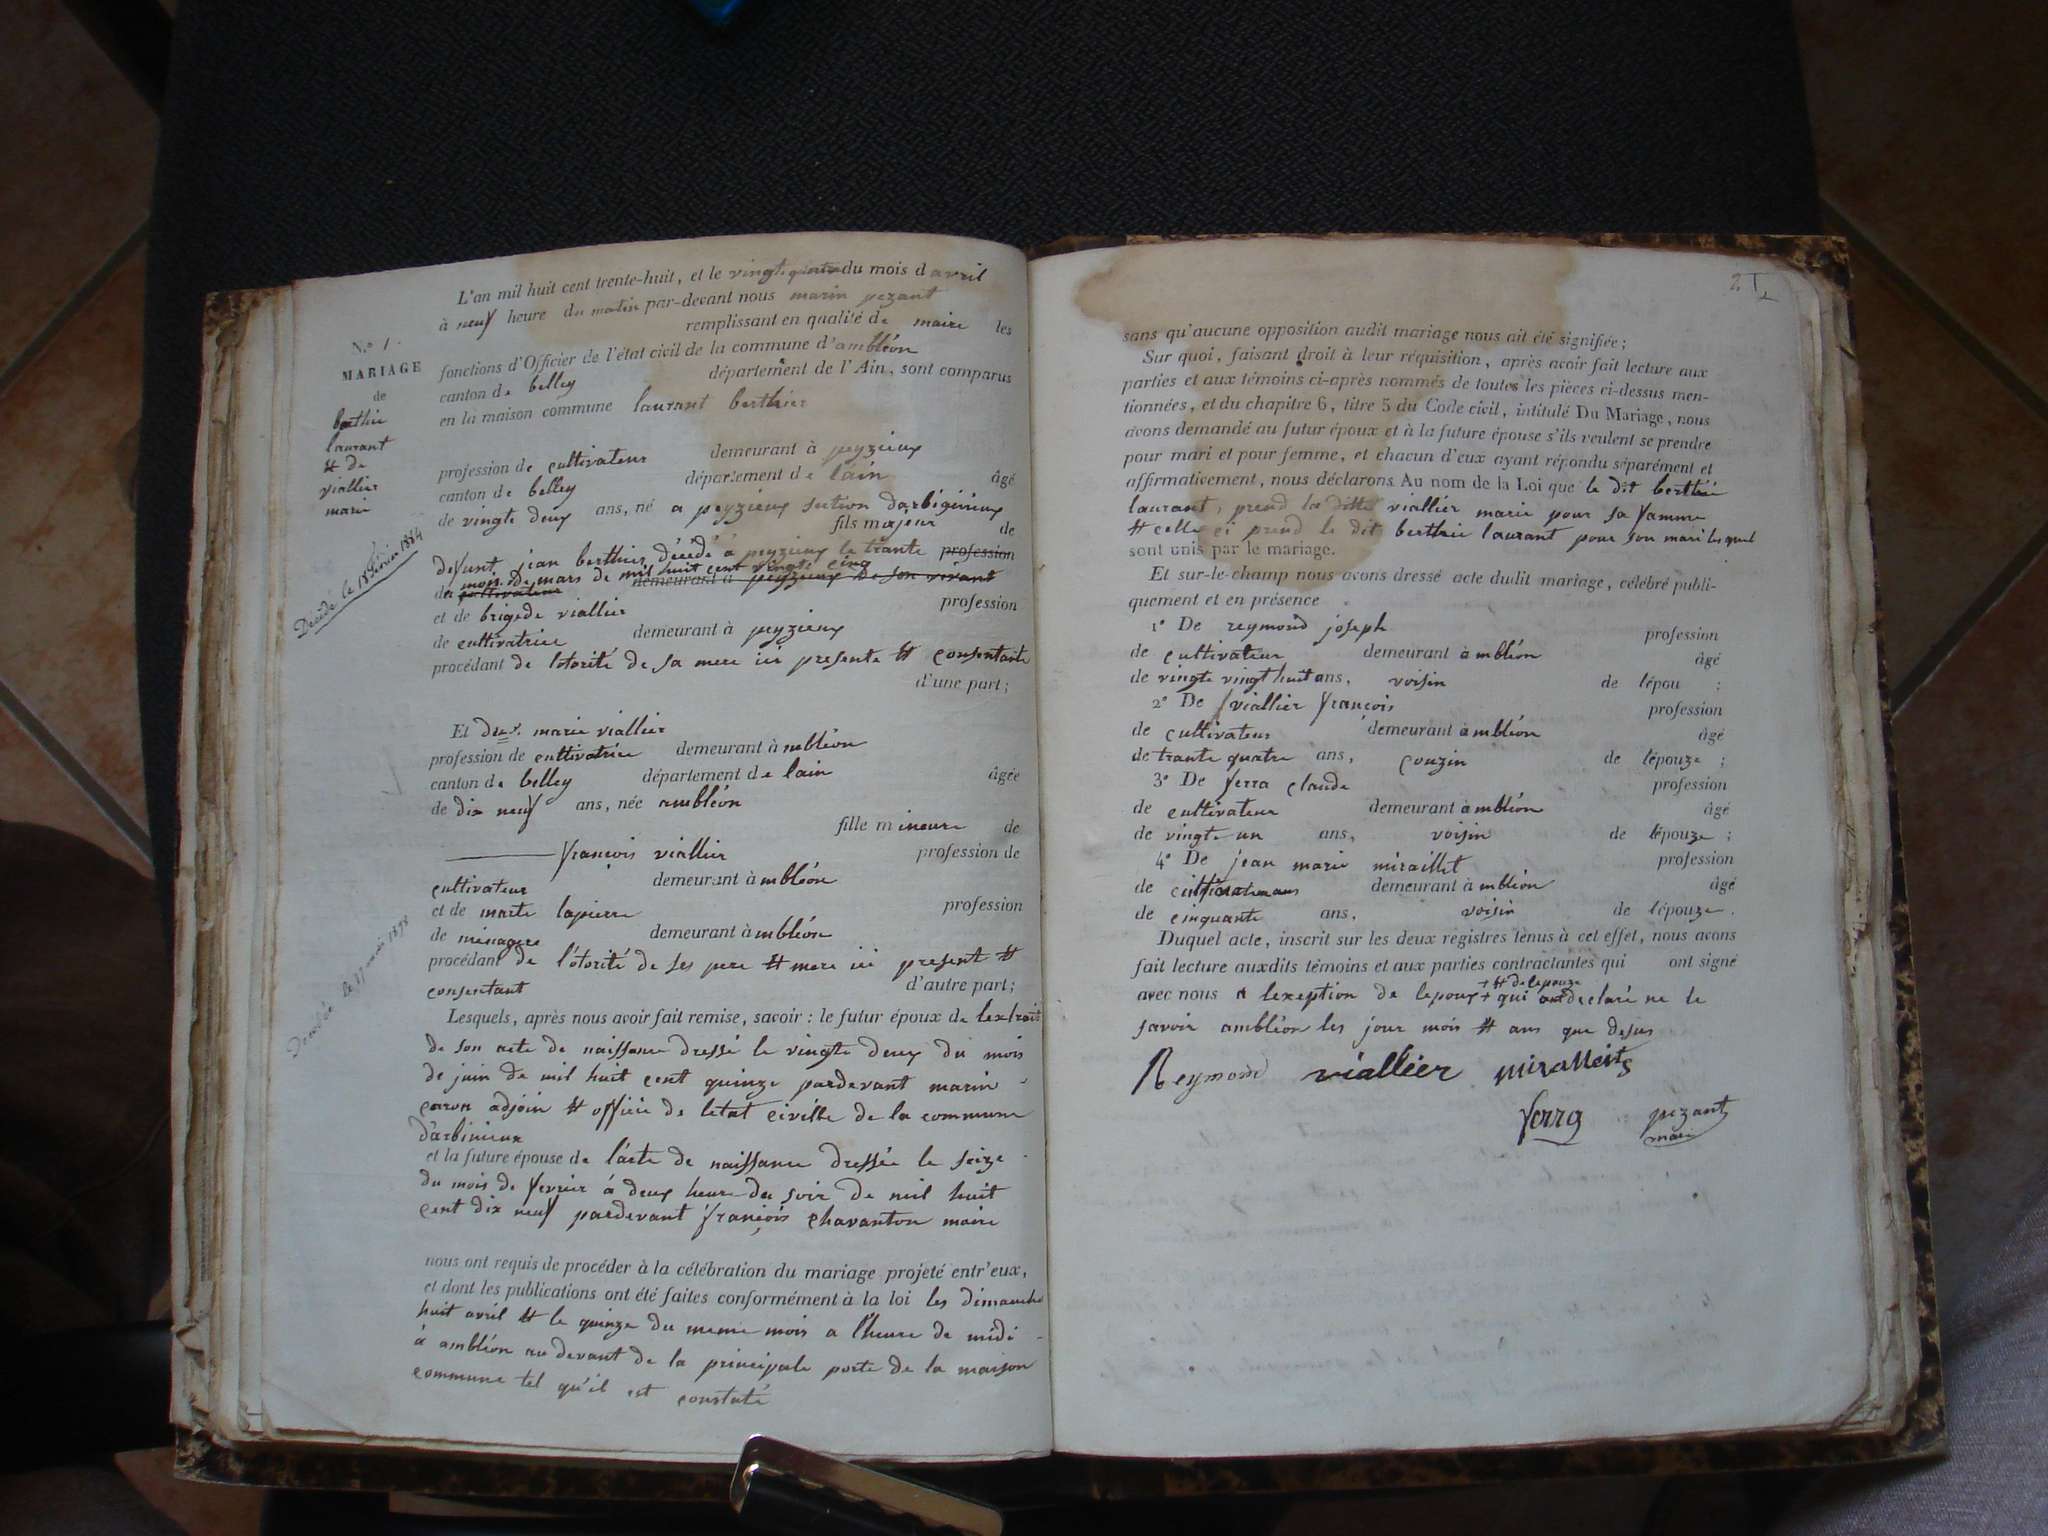 L'an mil huit cent trente-huit, et le vingt quatre du mois d avril
à neuf heure du matin par-devant nous marin pezant
remplissant en qualité de maire les
fonctions d'Officier de l'état civil de la commune d'ambléon
canton de belley département de l'Ain, sont comparus
en la maison commune laurant berthier
N.o 1.
MARIAGE
de
berthie
laurant
et de
viallier
marie
Décédé le 18 février 1884
Décédée le 27 mai 1878
profession de cultivateur demeurant à peyzieux
canton de belley département de lain âgé
de vingte deux ans, né a peyzieux section darbigînieux
fils majeur de
defunt jean berthier décédé à peyzieux le trante profession
mois de mars de mil huit cent vingte cinq
de cultivateur demeurant à peyzieux de son vivant
et de brigede viallier profession
de cultivatrice demeurant à peyzieux
procédant de lotorité de sa mere ici presente et consentante
d'une part;
Et marie viallier
profession de cultivatrice demeurant à mbléon
canton de belley département de lain âgée
de dix neuf ans, née ambléon
fille mineure de
françois viallier profession de
cultivateur demeurant à mbléon
et de marte lapierre profession
de ménagere demeurant à mbléon
procédant de l'otorité de ses pere et mere ici present et
consentant d'autre part;
Lesquels, après nous avoir fait remise, savoir : le futur époux de lextrait
de son acte de naissance dressé le vingte deux du mois
de juin de mil huit cent quinze pardevant marin
caron adjoin et officié de letat civille de la commune
d'arbinieux
et la future épouse de l'acte de naissance dressée le seize
du mois de fevrier à deux heure du soir de mil huit
cent dix neuf pardevant françois chavanton maire
nous ont requis de procéder à la célébration du mariage projeté entr'eux,
et dont les publications ont été faites conformément à la loi les dimanche
huit avril et le quinze du meme mois a l'heure de midi
à ambléon au devant de la principale porte de la maison
commune tel qu'il est constaté
2
sans qu'aucune opposition audit mariage nous ait été signifiée;
Sur quoi, faisant droit à leur réquisition, après avoir fait lecture aux
parties et aux témoins ci-après nommés de toutes les pièces ci-dessus men-
tionnées, et du chapitre 6, titre 5 du Code civil, intitulé Du Mariage, nous
avons demandé au futur époux et à la future épouse s'ils veulent se prendre
pour mari et pour femme, et chacun d'eux ayant répondu séparément et
affirmativement, nous déclarons Au nom de la Loi que le dit berthié
laurant, prend la ditte viallier marie pour sa famme
et celle ci prend le dit berthie laurant pour son mari lesquel
sont unis par le mariage.
Et sur-le-champ nous avons dressé acte dudit mariage, célébré publi-
quement et en présence
1° De reymond joseph profession
de cultivateur demeurant à mbléon âgé
de vingte vingt huit ans, voisin de lépou ;
2° De viallier françois profession
de cultivateur demeurant à mbléon âgé
de trante quatre ans, couzin de lépouze ;
3° De ferra claude profession
de cultivateur demeurant à mbléon âgé
de vingte un ans, voisin de lépouze ;
4° De jean marie miraillet profession
de demeurant à mbléon âgé
de cinquante ans, voisin de lépouze .
Duquel acte, inscrit sur les deux registres tenus à cet effet, nous avons
fait lecture auxdits témoins et aux parties contractantes qui ont signé
+ et de lepouze
avec nous a lexeption de lepoux + qui declaré ne le
savoir ambléon les jour mois et ans que desus
Reymond viallier miralleits
ferra pezant
mair